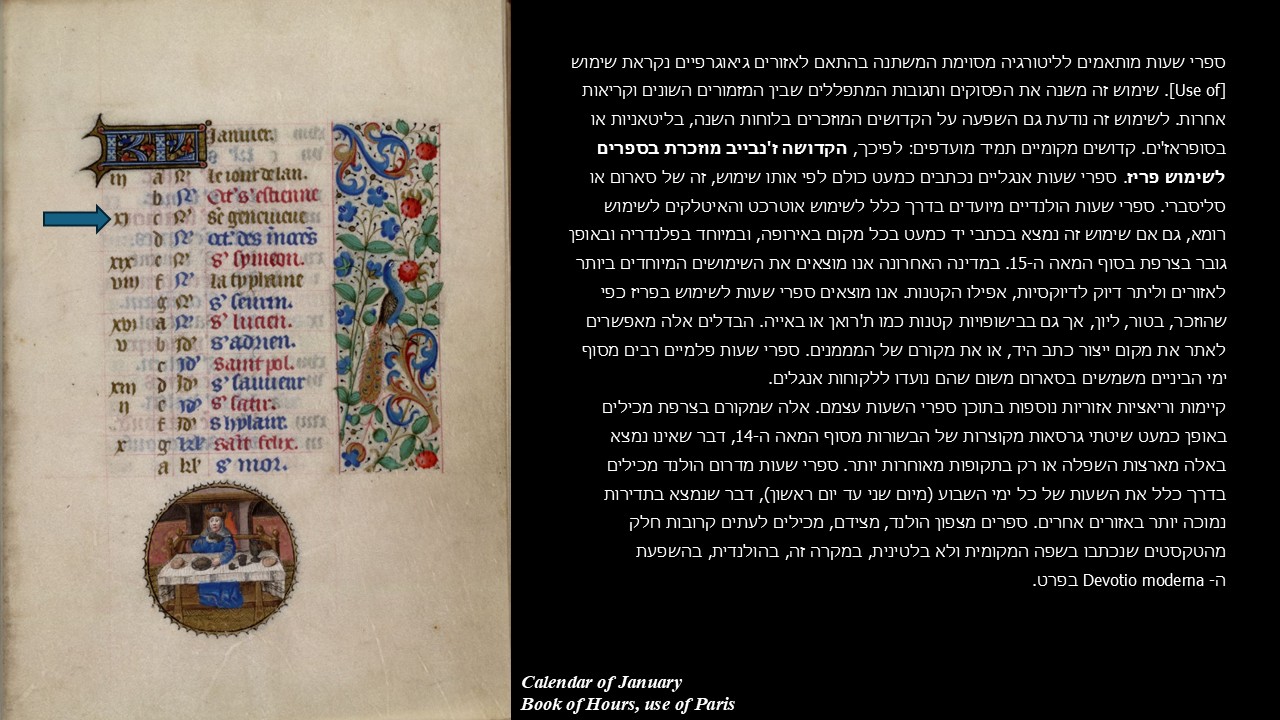 Januier.
iii a N le iour de lan.
b N Oct s' estienne
xi c N Se geneuieue
d N oct. des innocēs
xix e N s' symeon.
viii f N la typhaine
g N s' seurin.
xvi a N s' lucien.
v b Id' s' adrien.
c Id' saint pol.
xiii d Id' s' sauueur
ii e Id' s' satir.
f Id' s hylair.
x g kl' saīt felix.
a kl' s' mor.
ספרי שעות מותאמים לליטורגיה מסוימת המשתנה בהתאם לאזורים גיאוגרפיים נקראת שימוש
[Use of]. שימוש זה משנה את הפסוקים ותגובות המתפללים שבין המזמורים השונים וקריאות
אחרות. לשימוש זה נודעת גם השפעה על הקדושים המוזכרים בלוחות השנה, בליטאניות או
בסופראז'ים. קדושים מקומיים תמיד מועדפים: לפיכך, הקדושה ז'נבייב מוזכרת בספרים
לשימוש פריז. ספרי שעות אנגליים נכתבים כמעט כולם לפי אותו שימוש, זה של סארום או
סליסברי. ספרי שעות הולנדיים מיועדים בדרך כלל לשימוש אוטרכט והאיטלקים לשימוש
רומא, גם אם שימוש זה נמצא בכתבי יד כמעט בכל מקום באירופה, ובמיוחד בפלנדריה ובאופן
גובר בצרפת בסוף המאה ה-15. במדינה האחרונה אנו מוצאים את השימושים המיוחדים ביותר
לאזורים וליתר דיוק לדיוקסיות, אפילו הקטנות. אנו מוצאים ספרי שעות לשימוש בפריז כפי
שהוזכר, בטור, ליון, אך גם בבישופויות קטנות כמו ת'רואן או באייה. הבדלים אלה מאפשרים
לאתר את מקום ייצור כתב היד, או את מקורם של המממנים. ספרי שעות פלמיים רבים מסוף
ימי הביניים משמשים בסארום משום שהם נועדו ללקוחות אנגלים.
קיימות וריאציות אזוריות נוספות בתוכן ספרי השעות עצמם. אלה שמקורם בצרפת מכילים
באופן כמעט שיטתי גרסאות מקוצרות של הבשורות מסוף המאה ה-14, דבר שאינו נמצא
באלה מארצות השפלה או רק בתקופות מאוחרות יותר. ספרי שעות מדרום הולנד מכילים
בדרך כלל את השעות של כל ימי השבוע (מיום שני עד יום ראשון), דבר שנמצא בתדירות
נמוכה יותר באזורים אחרים. ספרים מצפון הולנד, מצידם, מכילים לעתים קרובות חלק
מהטקסטים שנכתבו בשפה המקומית ולא בלטינית, במקרה זה, בהולנדית, בהשפעת
ה- Devotio moderna בפרט.
Calendar of January
Book of Hours, use of Paris